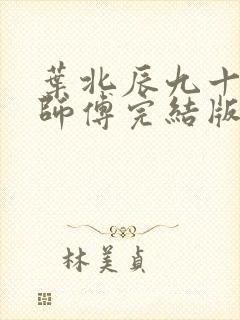 葉北辰九十
師傅完結版
林美貞